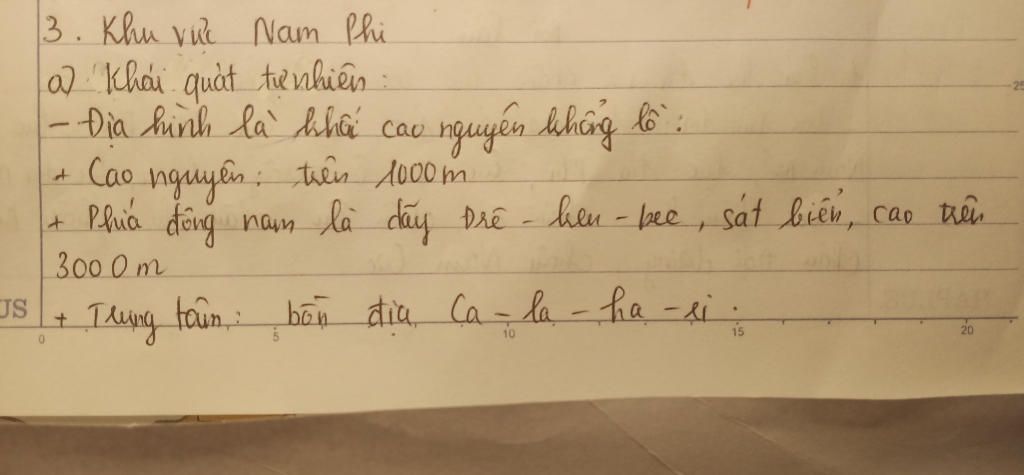 3. Khu vực Nam Phi
a) Khái quát tự nhiên:
- Địa hình là khối cao nguyên khổng lồ:
+ Cao nguyên: trên 1000m
+ Phía đông nam là dãy Drê-ken-bec, sát biển, cao trên
3000m
+ Trung tâm: bồn địa Ca-la-ha-ri.
25
US
0 5 10 15 20